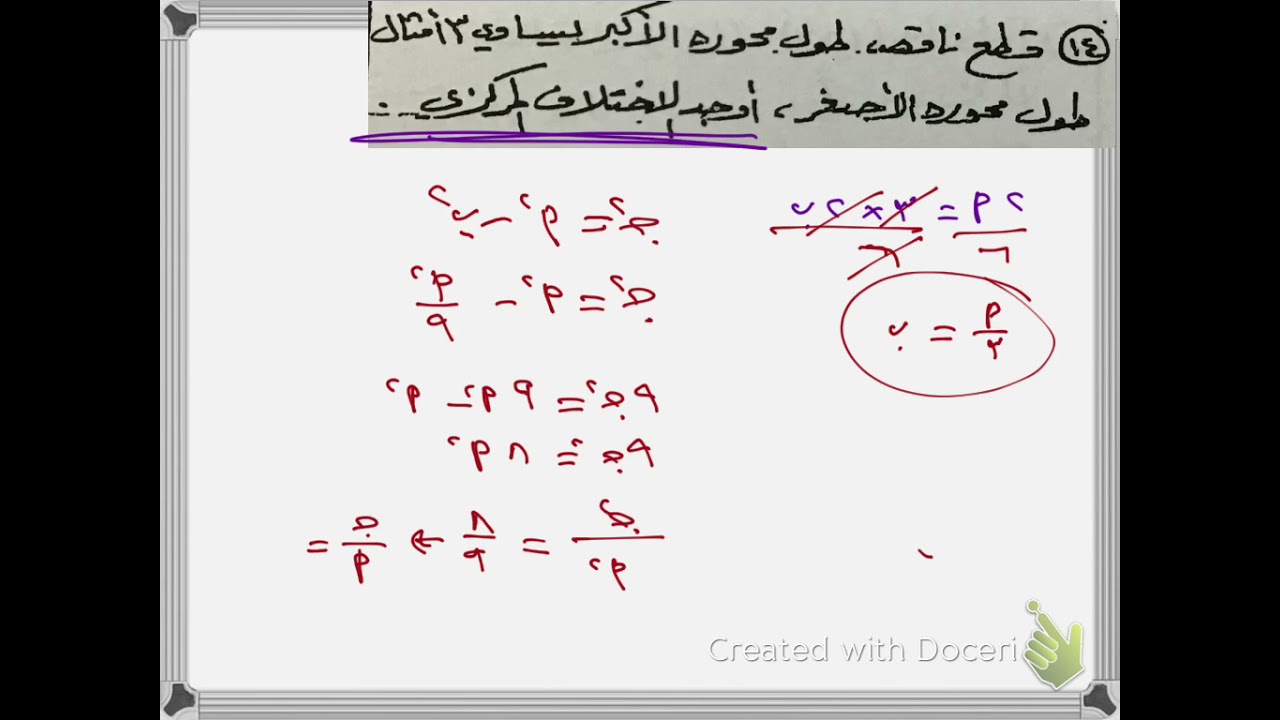 ١٤ قطع ناقص، طول محوره الأكبر يساوي ٣ أمثال
طول محوره الأصغر، أوجد الاختلاف المركزي...
٢٢ = ٣ × ٢ب
٦ ٦
ب = م/٣
جـ² = م² − ب²
جـ² = م² − م²/٩
٩جـ² = ٩م² − م²
٩جـ² = ٨م²
جـ²/م² = ٨/٩ ← جـ/م =
Created with Doceri